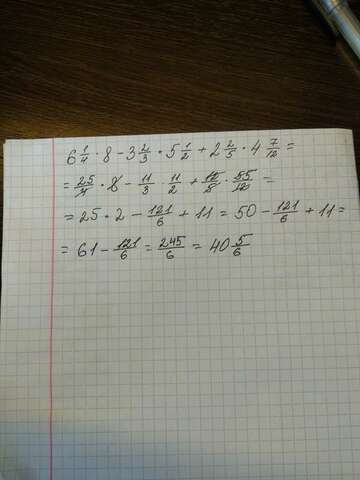 6 1/4 · 8 - 3 2/3 · 5 1/2 + 2 2/5 · 4 7/12 =
= 25/4 · 8 - 11/3 · 11/2 + 12/5 · 55/12 =
= 25 · 2 - 121/6 + 11 = 50 - 121/6 + 11 =
= 61 - 121/6 = 245/6 = 40 5/6